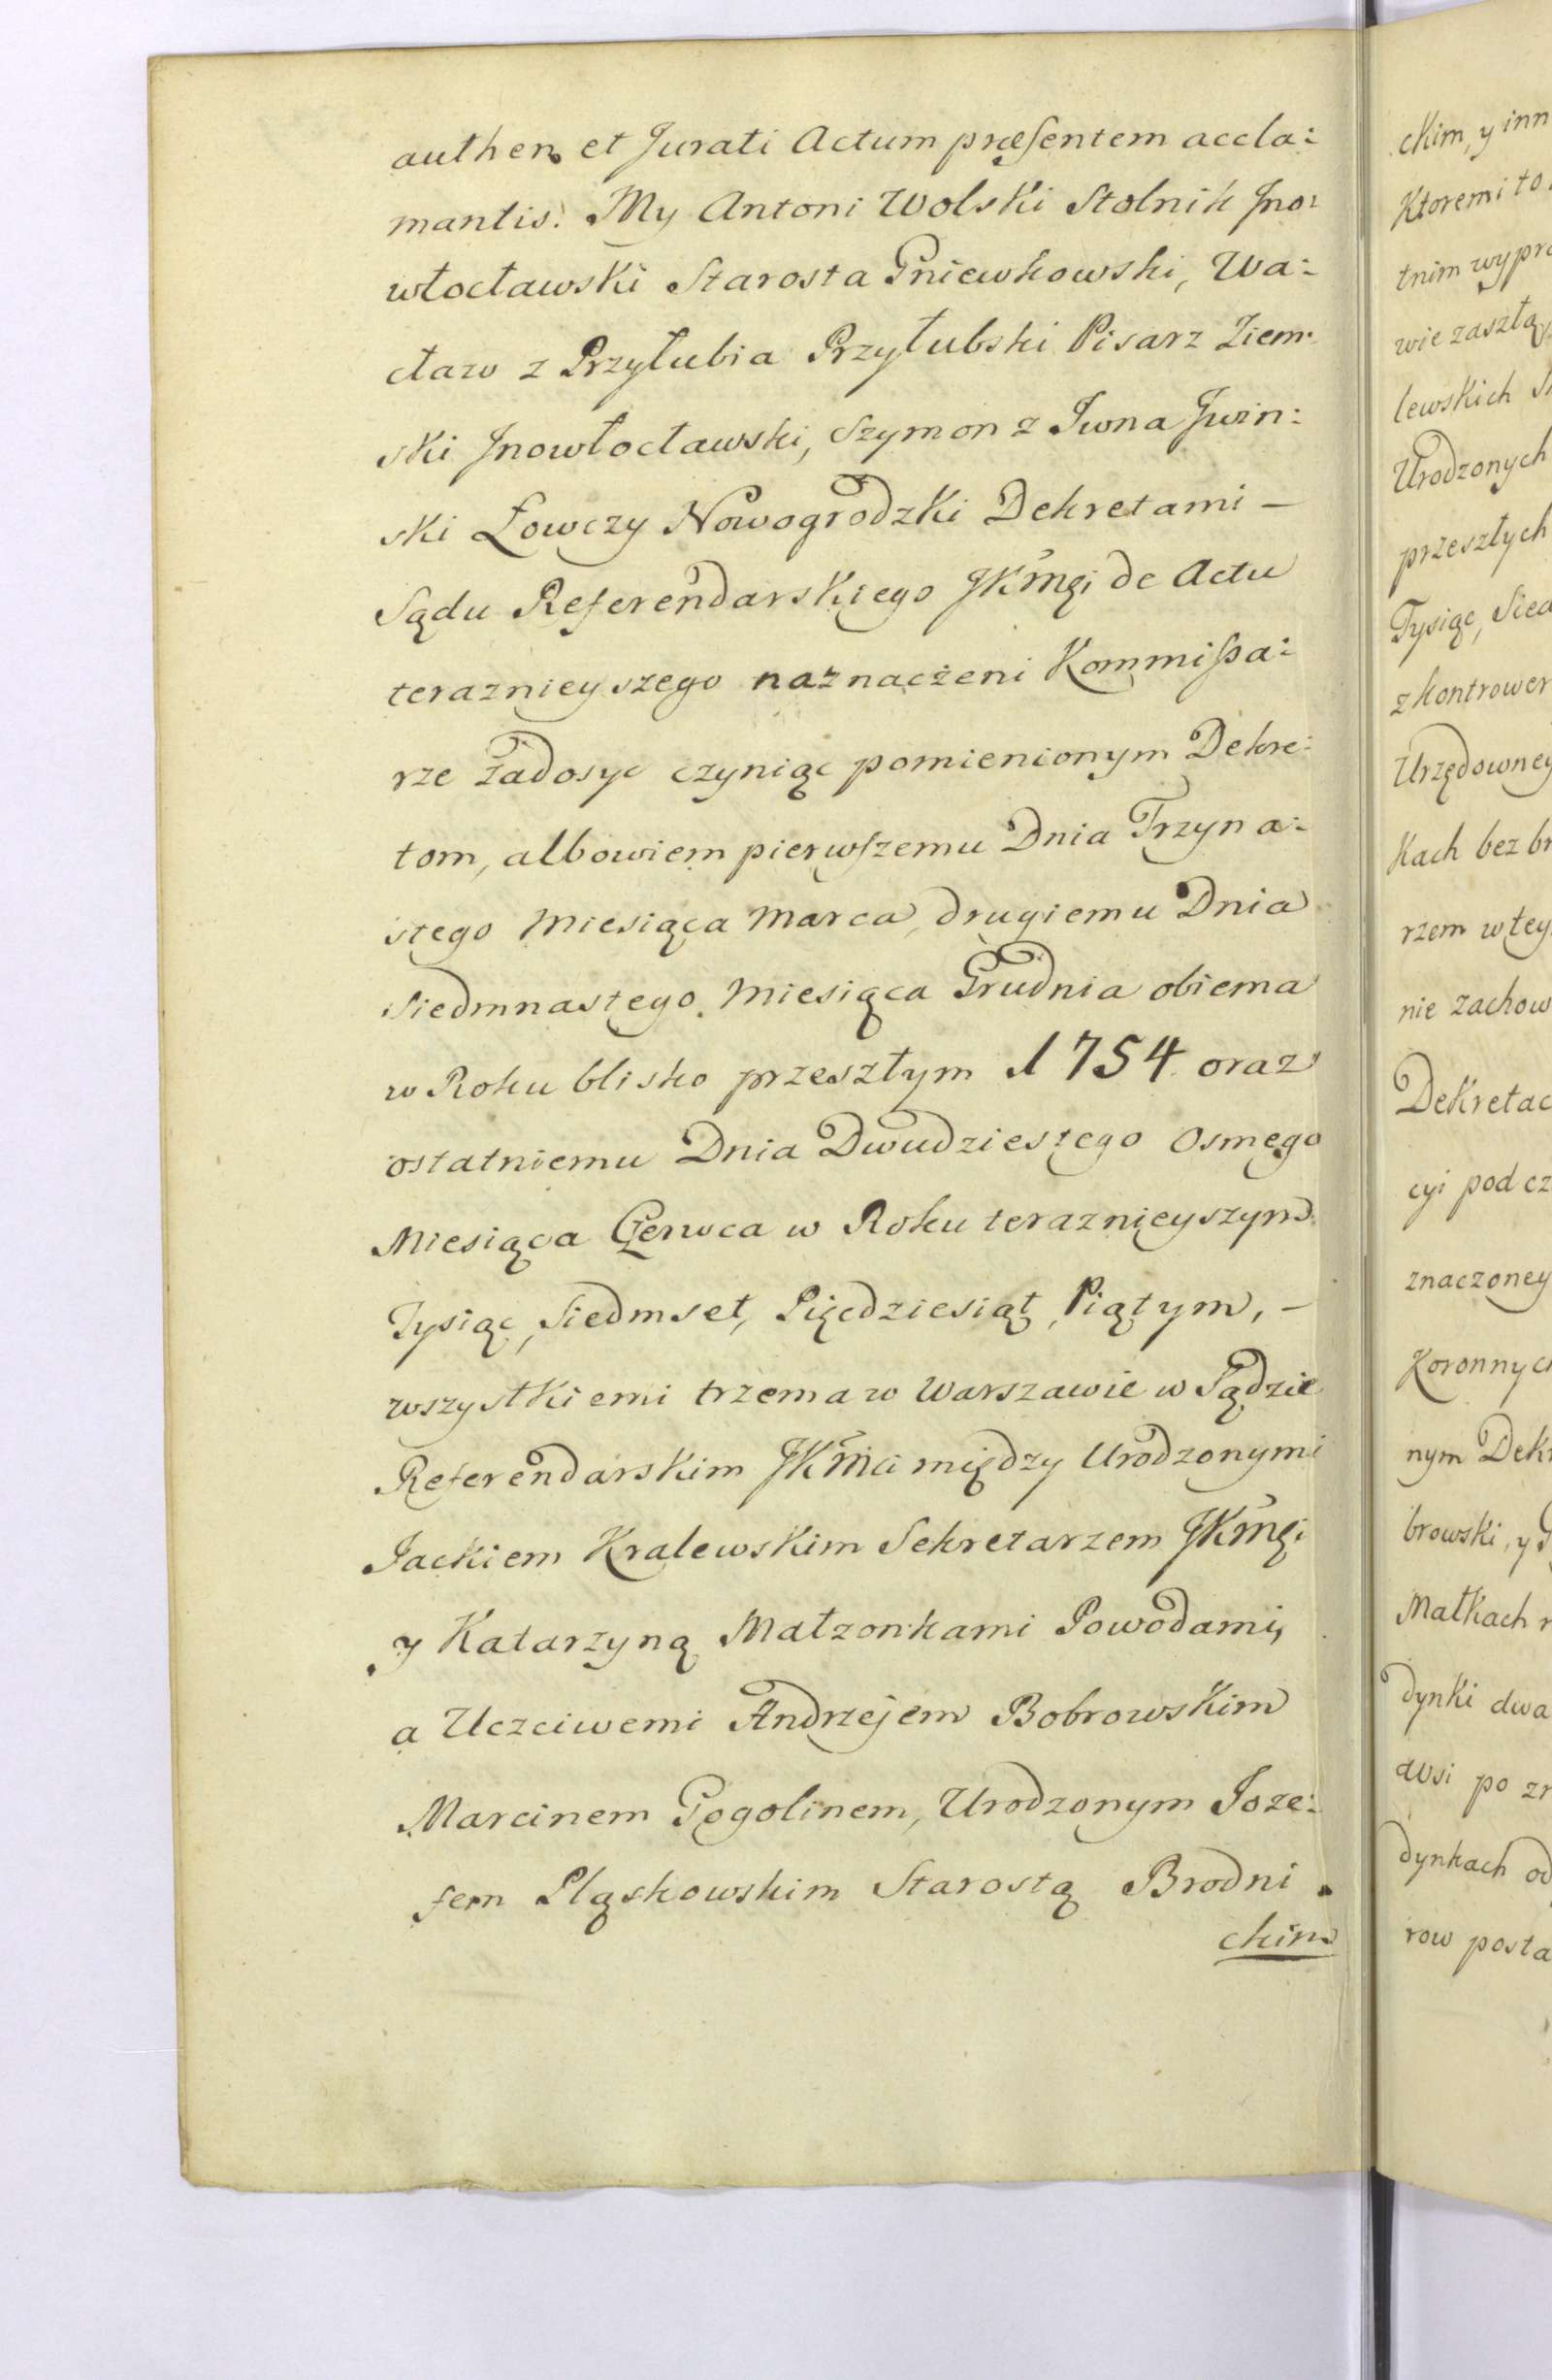 authen. et Jurati Actum præsentem accla:
mantis. My Antoni Wolski Stolnik Jno:
włocławski Starosta Gniewkowski, Wa:
cław z Przyłubia Przyłubski Pisarz Ziem:
ski Jnowłocławski, Szymon z Iwna Jwin:
ski Łowczy Nowogrodzki Dekretami –
Sądu Referendarskiego JKmći de Actu
teraznieyszego naznaczeni Kommissa:
rze zadosyc czyniąc pomienionym Dekre:
tom, albowiem pierwszemu Dnia Trzyna:
stego Miesiąca Marca, drugiemu Dnia
Siedmnastego Miesiąca Grudnia obiema
w Roku blisko przeszłym 1754 oraz
ostatniemu Dnia Dwudziestego Osmego
Miesiąca Czerwca w Roku teraznieyszym
Tysiąc, Siedmset, Pięcdziesiąt, Piątym, –
wszystkiemi trzema w Warszawie w Sądzie
Referendarskim JKmci między Urodzonymi
Jackiem Kralewskim Sekretarzem JKmći
y Katarzyną Małzonkami Powodami,
a Uczciwemi Andrzejem Bobrowskim
Marcinem Gogolinem, Urodzonym Joze:
fem Pląskowskim Starostą Brodni.
ckim
ckim, y inn
Ktoremi to
tnim wypro
wie zaszłą
lewskich
Urodzonych
przeszłych
Tysiąc, Sied
z kontrower
Urzędowney
kach bez br
rzem w tey
nie zachow
Dekretac
cyi pod cz
znaczoney
Koronnych
nym Dekr
browski, y
Matkach
dynki dwa
dynkach od
row posta